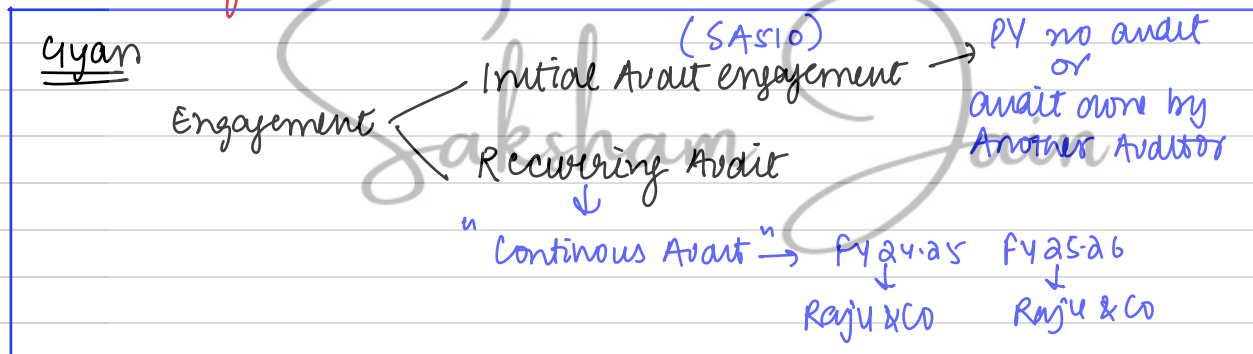 Gyan
(SA510)
Engagement
Initial Audit engagement → PY no audit
or
audit done by
Another Auditor
Recurring Audit
↓
"Continous Audit" → FY 24-25 FY 25-26
↓ ↓
Raju & Co Raju & Co
Saksham Jain